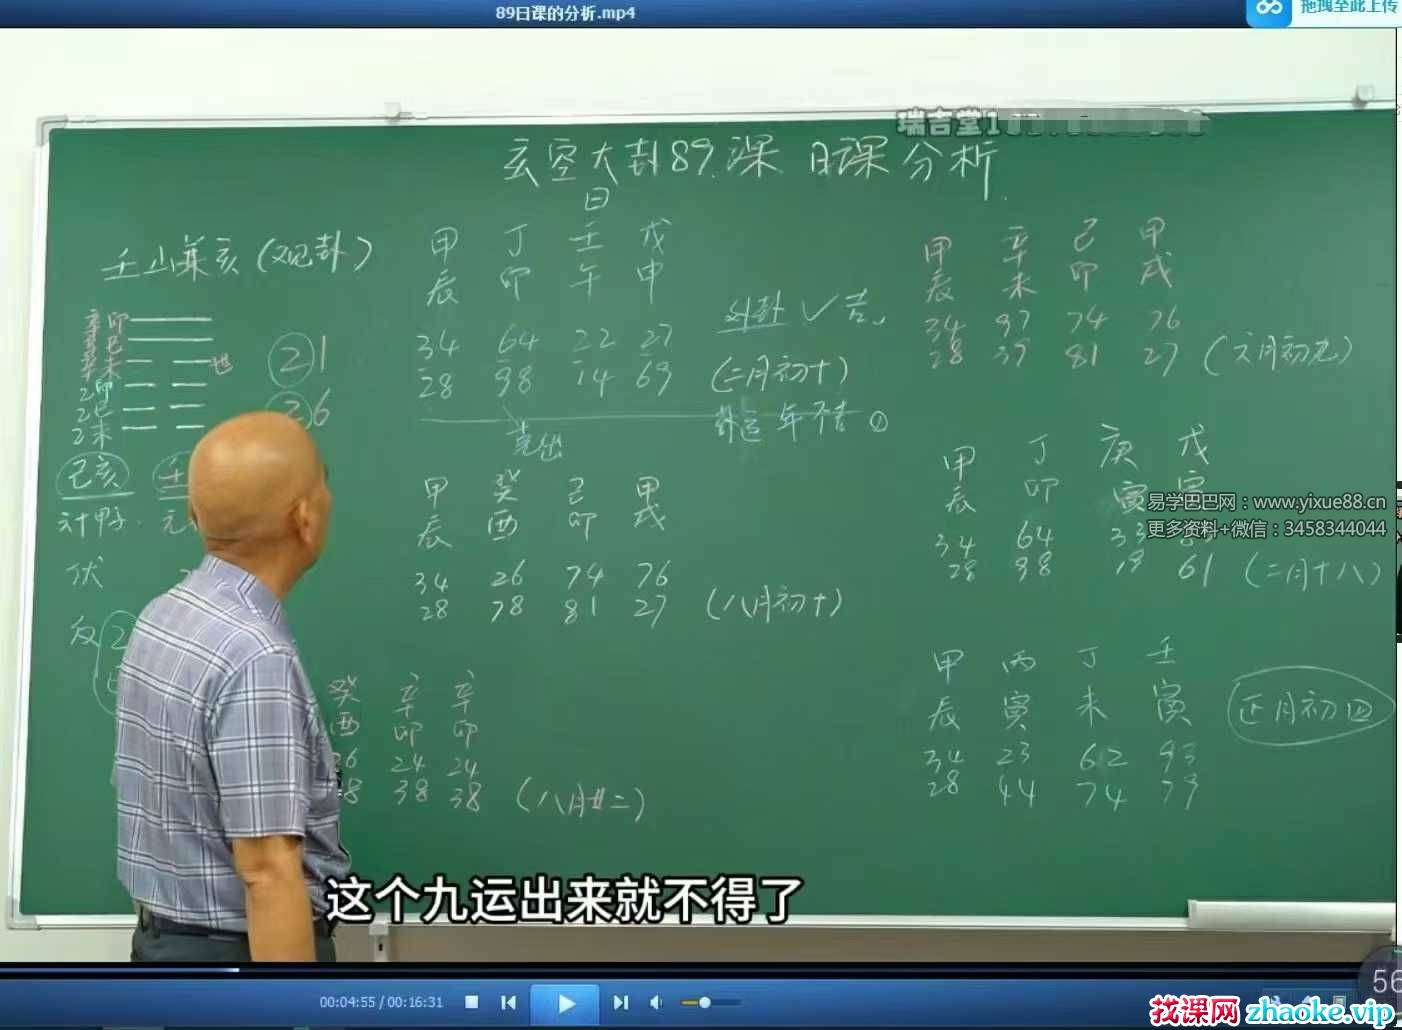 89日课的分析.mp4
拖拽至此上传
瑞吉堂1
玄空大卦89课 日课分析
日
壬山兼亥(观卦)
甲 丁 壬 戊
辰 卯 午 申
34 64 22 27
28 98 14 69
外卦 ✓吉
(二月初十)
卦运 年不吉
克出
辛卯
辛巳
辛未 世
乙卯
乙巳
乙未
21
26
己亥 壬
伏
反
甲 癸 己 甲
辰 酉 卯 戌
34 26 74 76
28 78 81 27
(八月初十)
癸 辛 辛
酉 卯 卯
26 24 24
78 38 38
(八月廿二)
甲 辛 己 甲
辰 未 卯 戌
34 97 74 76
28 39 81 27
(六月初九)
甲 丁 庚 戊
辰 卯 寅 寅
34 64 33
28 98 61
(二月十八)
甲 丙 丁 壬
辰 寅 未 寅
34 23 62 93
28 44 74 79
正月初四
易学巴巴网：www.yixue88.cn
更多资料+微信：3458344044
这个九运出来就不得了
00:04:55 / 00:16:31
56
找课网 zhaoke.vip